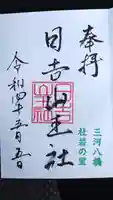 奉拝
三河八橋
杜若の里
日吉山王社
令和四年五月五日